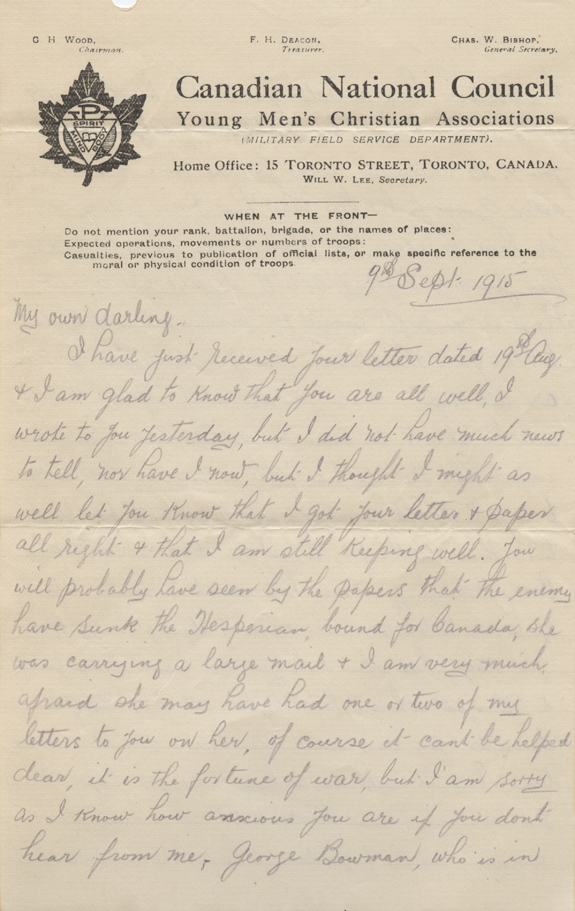 G H Wood, F. H. Deacon, Chas. W. Bishop,
Chairman. Treasurer. General Secretary.
P
SPIRIT
MIND BODY
Canadian National Council
Young Men's Christian Associations
(MILITARY FIELD SERVICE DEPARTMENT).
Home Office: 15 Toronto Street, Toronto, Canada.
Will W. Lee, Secretary.
WHEN AT THE FRONT—
Do not mention your rank, battalion, brigade, or the names of places:
Expected operations, movements or numbers of troops:
Casualties, previous to publication of official lists, or make specific reference to the
moral or physical condition of troops
9th Sept. 1915
My own darling.
I have just received your letter dated 19th Aug.
& I am glad to know that you are all well, I
wrote to you yesterday, but I did not have much news
to tell, nor have I now, but I thought I might as
well let you know that I got your letter & paper
all right & that I am still keeping well. You
will probably have seen by the papers that the enemy
have sunk the Hesperian, bound for Canada, she
was carrying a large mail & I am very much
afraid she may have had one or two of my
letters to you on her, of course it cant be helped
dear, it is the fortune of war, but I am sorry
as I know how anxious you are if you dont
hear from me, George Bowman, who is in